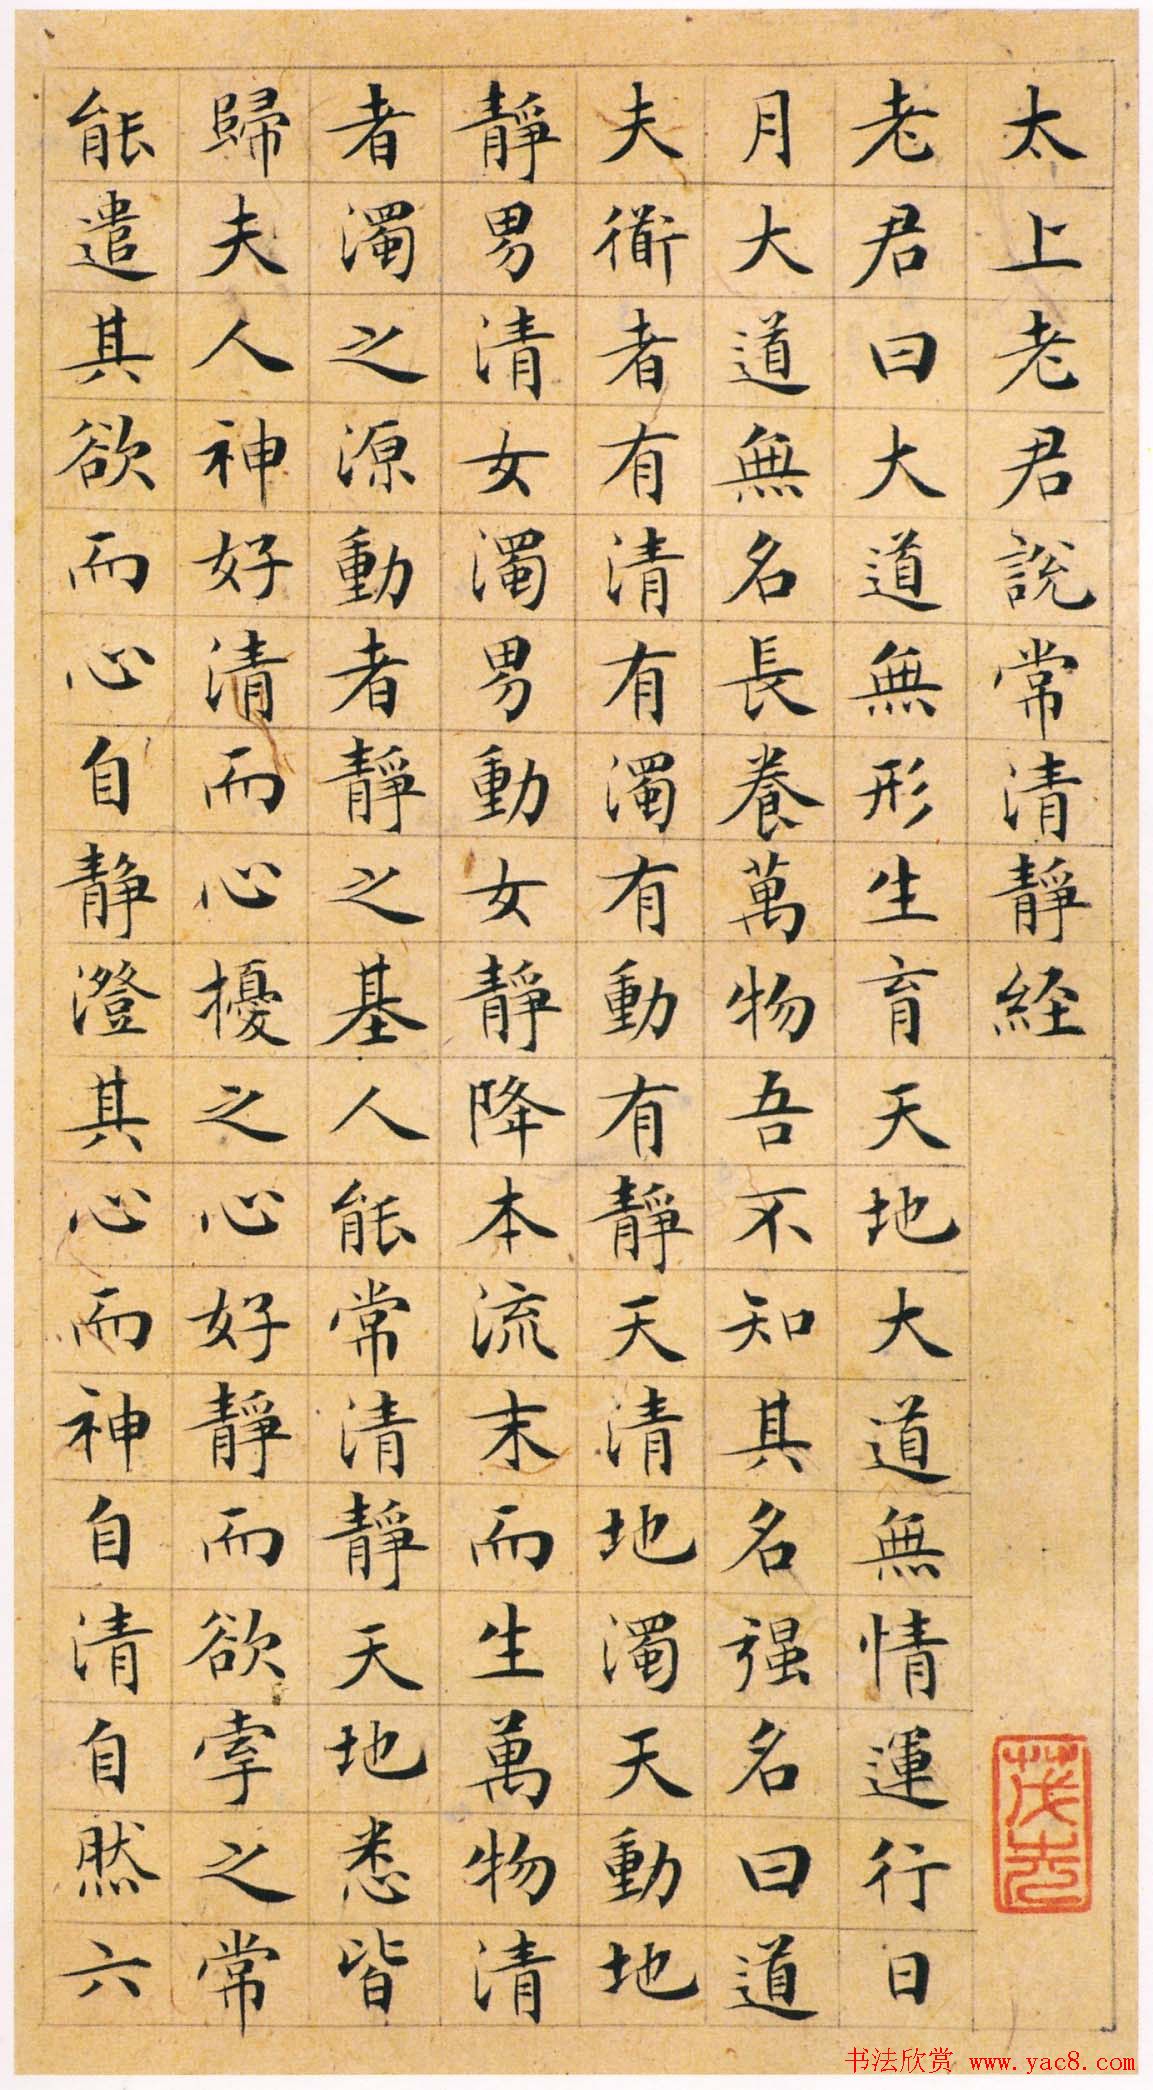 太上老君說常清靜経
老君曰大道無形生育天地大道無情運行日
月大道無名長養萬物吾不知其名强名曰道
夫衜者有清有濁有動有靜天清地濁天動地
靜男清女濁男動女靜降本流末而生萬物清
者濁之源動者靜之基人能常清靜天地悉皆
歸夫人神好清而心擾之心好靜而欲牽之常
能遣其欲而心自静澄其心而神自清自然六
书法欣赏 www.yac8.com